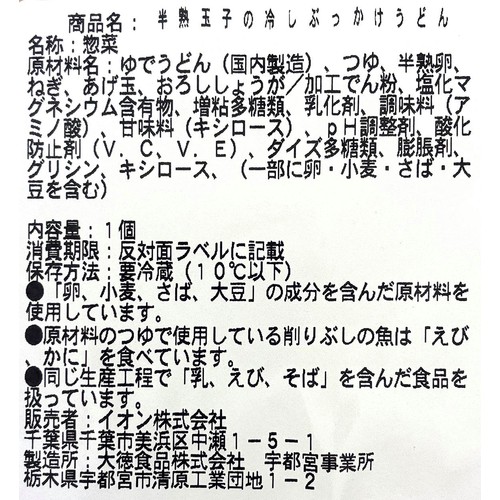 商品名：半熟玉子の冷しぶっかけうどん
名称：惣菜
原材料名：ゆでうどん（国内製造）、つゆ、半熟卵、
ねぎ、あげ玉、おろししょうが／加工でん粉、塩化マ
グネシウム含有物、増粘多糖類、乳化剤、調味料（ア
ミノ酸）、甘味料（キシロース）、ｐＨ調整剤、酸化
防止剤（Ｖ．Ｃ、Ｖ．Ｅ）、ダイズ多糖類、膨脹剤、
グリシン、キシロース、（一部に卵・小麦・さば・大
豆を含む）
内容量：１個
消費期限：反対面ラベルに記載
保存方法：要冷蔵（１０℃以下）
●「卵、小麦、さば、大豆」の成分を含んだ原材料を
使用しています。
●原材料のつゆで使用している削りぶしの魚は「えび
、かに」を食べています。
●同じ生産工程で「乳、えび、そば」を含んだ食品を
扱っています。
販売者：イオン株式会社
千葉県千葉市美浜区中瀬１－５－１
製造所：大徳食品株式会社　宇都宮事業所
栃木県宇都宮市清原工業団地１－２